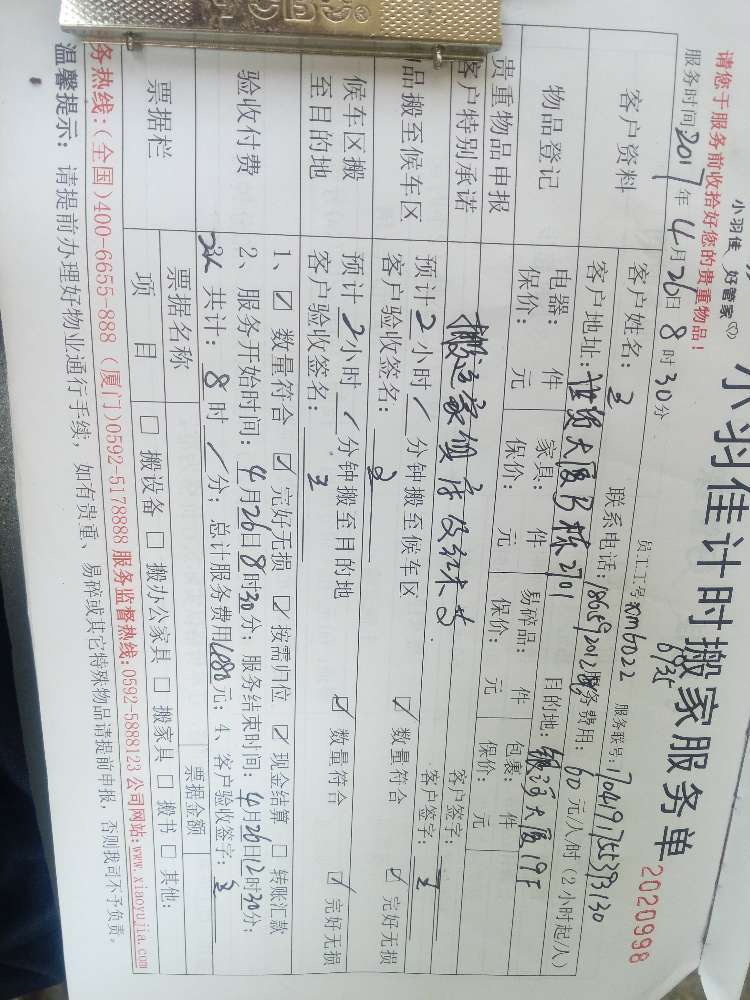 小羽佳 好管家
小羽佳计时搬家服务单
2020998
请您于服务前收拾好您的贵重物品!
员工工号xm6022 服务联号:
6135
服务时间2017年4月26日8时30分
客户资料
客户姓名:王 联系电话: 服务费用:60元/人/时(2小时起/人)
客户地址:世贸大厦B栋2701 目的地:银河大厦19F
物品登记
电器: 件 家具: 件 易碎品: 件 包裹: 件
保价: 元 保价: 元 保价: 元 保价: 元
贵重物品申报
客户特别承诺
搬运家俱 客户签字:王
品搬至候车区
预计2小时/分钟搬至候车区 ☑ 数量符合 ☑ 完好无损
客户验收签名:王
候车区搬
至目的地
预计2小时/分钟搬至目的地 ☑ 数量符合 ☑ 完好无损
客户验收签名:王
验收付费
1、☑ 数量符合 ☑ 完好无损 ☑ 按需归位 ☑ 现金结算 ☐ 转账汇款
2、服务开始时间:4月26日8时30分;服务结束时间:4月26日12时30分;
共计:8时/分;总计服务费用480元;4、客户验收签字:王
票据栏
票据名称 票据金额
项目 ☐ 搬设备 ☐ 搬办公家具 ☐ 搬家具 ☐ 搬书 ☐ 其他:
务热线:(全国)400-6655-888 (厦门)0592-5178888 服务监督热线:0592-5888123 公司网站:www.xiaoyujia.com
温馨提示:请提前办理好物业通行手续,如有贵重、易碎或其它特殊物品请提前申报,否则我司不予负责。